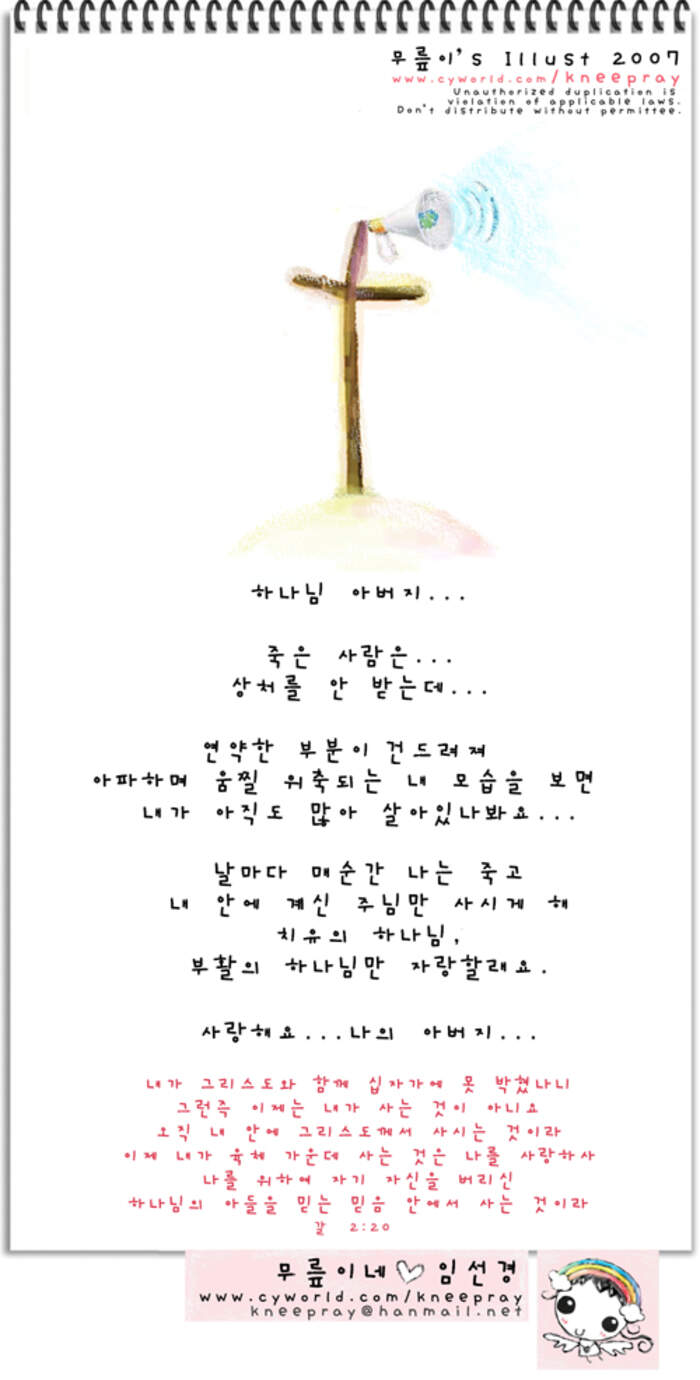 무릎이's Illust 2007
www.cyworld.com/kneepray
Unauthorized duplication is
violation of applicable laws.
Don't distribute without permittee.
하나님 아버지...
죽은 사람은...
상처를 안 받는데...
연약한 부분이 건드려져
아파하며 움찔 위축되는 내 모습을 보면
내가 아직도 많아 살아있나봐요...
날마다 매순간 나는 죽고
내 안에 계신 주님만 사시게 해
치유의 하나님,
부활의 하나님만 자랑할래요.
사랑해요...나의 아버지...
내가 그리스도와 함께 십자가에 못 박혔나니
그런즉 이제는 내가 사는 것이 아니요
오직 내 안에 그리스도께서 사시는 것이라
이제 내가 육체 가운데 사는 것은 나를 사랑하사
나를 위하여 자기 자신을 버리신
하나님의 아들을 믿는 믿음 안에서 사는 것이라
갈 2:20
무릎이네♡임선경
www.cyworld.com/kneepray
kneepray@hanmail.net